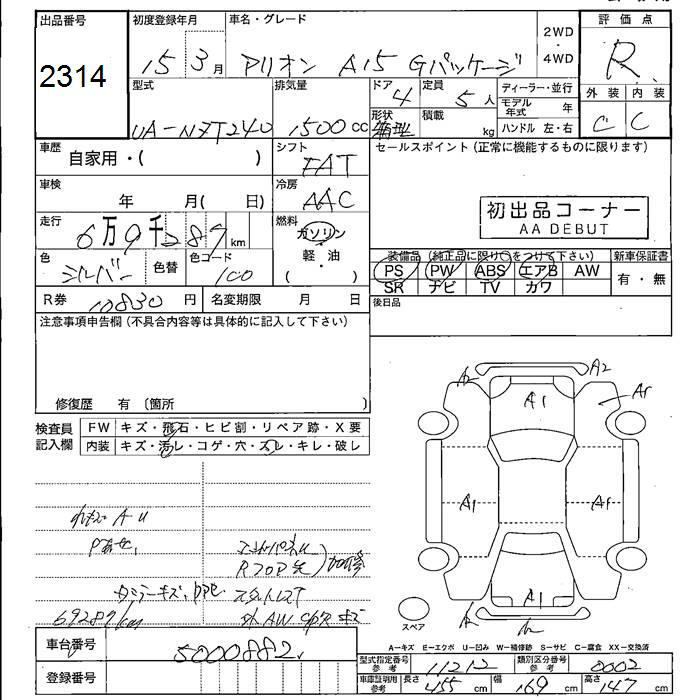 出品番号
2314
初度登録年月
15 3月
車名・グレード
アリオン A15 Gパッケージ
2WD
・
4WD
評価点
R
外装 内装
C C
型式
UA-NZT240
排気量
1500cc
ドア
4
形状
箱型
定員
5人
積載
kg
ディーラー・並行
モデル年式 年
ハンドル 左・右
車歴
自家用・( )
シフト
FAT
セールスポイント(正常に機能するものに限ります)
初出品コーナー
AA DEBUT
車検
年 月( 日)
冷房
AAC
走行
6万9千287km
燃料
ガソリン
・
軽・油
( )
色
シルバー
色替
色コード
1C0
装備品(純正品に限り○をつけて下さい)
PS PW ABS エアB AW
SR ナビ TV カワ
新車保証書
有・無
R券 10830円
名変期限 月 日
後日品
注意事項申告欄(不具合内容等は具体的に記入して下さい)
修復歴 有(箇所 )
検査員
記入欄
FW キズ・飛石・ヒビ割・リペア跡・X要
内装 キズ・汚レ・コゲ・穴・スレ・キレ・破レ
A2 A2
A1 A1
A1 A1
A1
スペア
A U
Pあせ
RフロP先
加修
69287km
外AW キズ
A-キズ E-エクボ U-凹み W-補修跡 S-サビ C-腐食 XX-交換済
車台番号
5000882
登録番号
型式指定番号
参考
11212
類別区分番号
参考
0002
車庫証明用
参考
長さ 455cm
幅 169cm
高さ 147cm